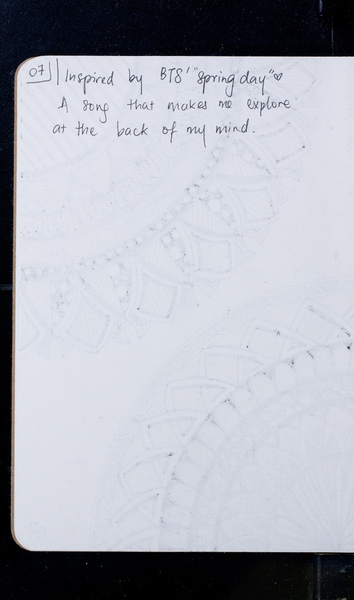 07 Inspired by BTS' "spring day" ♡
A song that makes me explore
at the back of my mind.